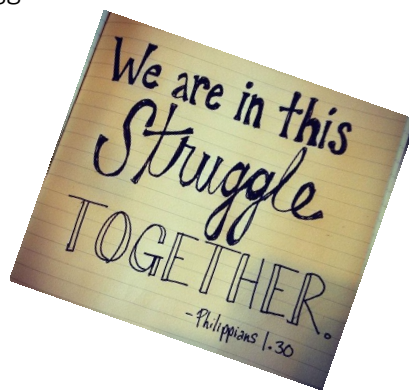 We are in this
Struggle
TOGETHER.
-Philippians 1.30